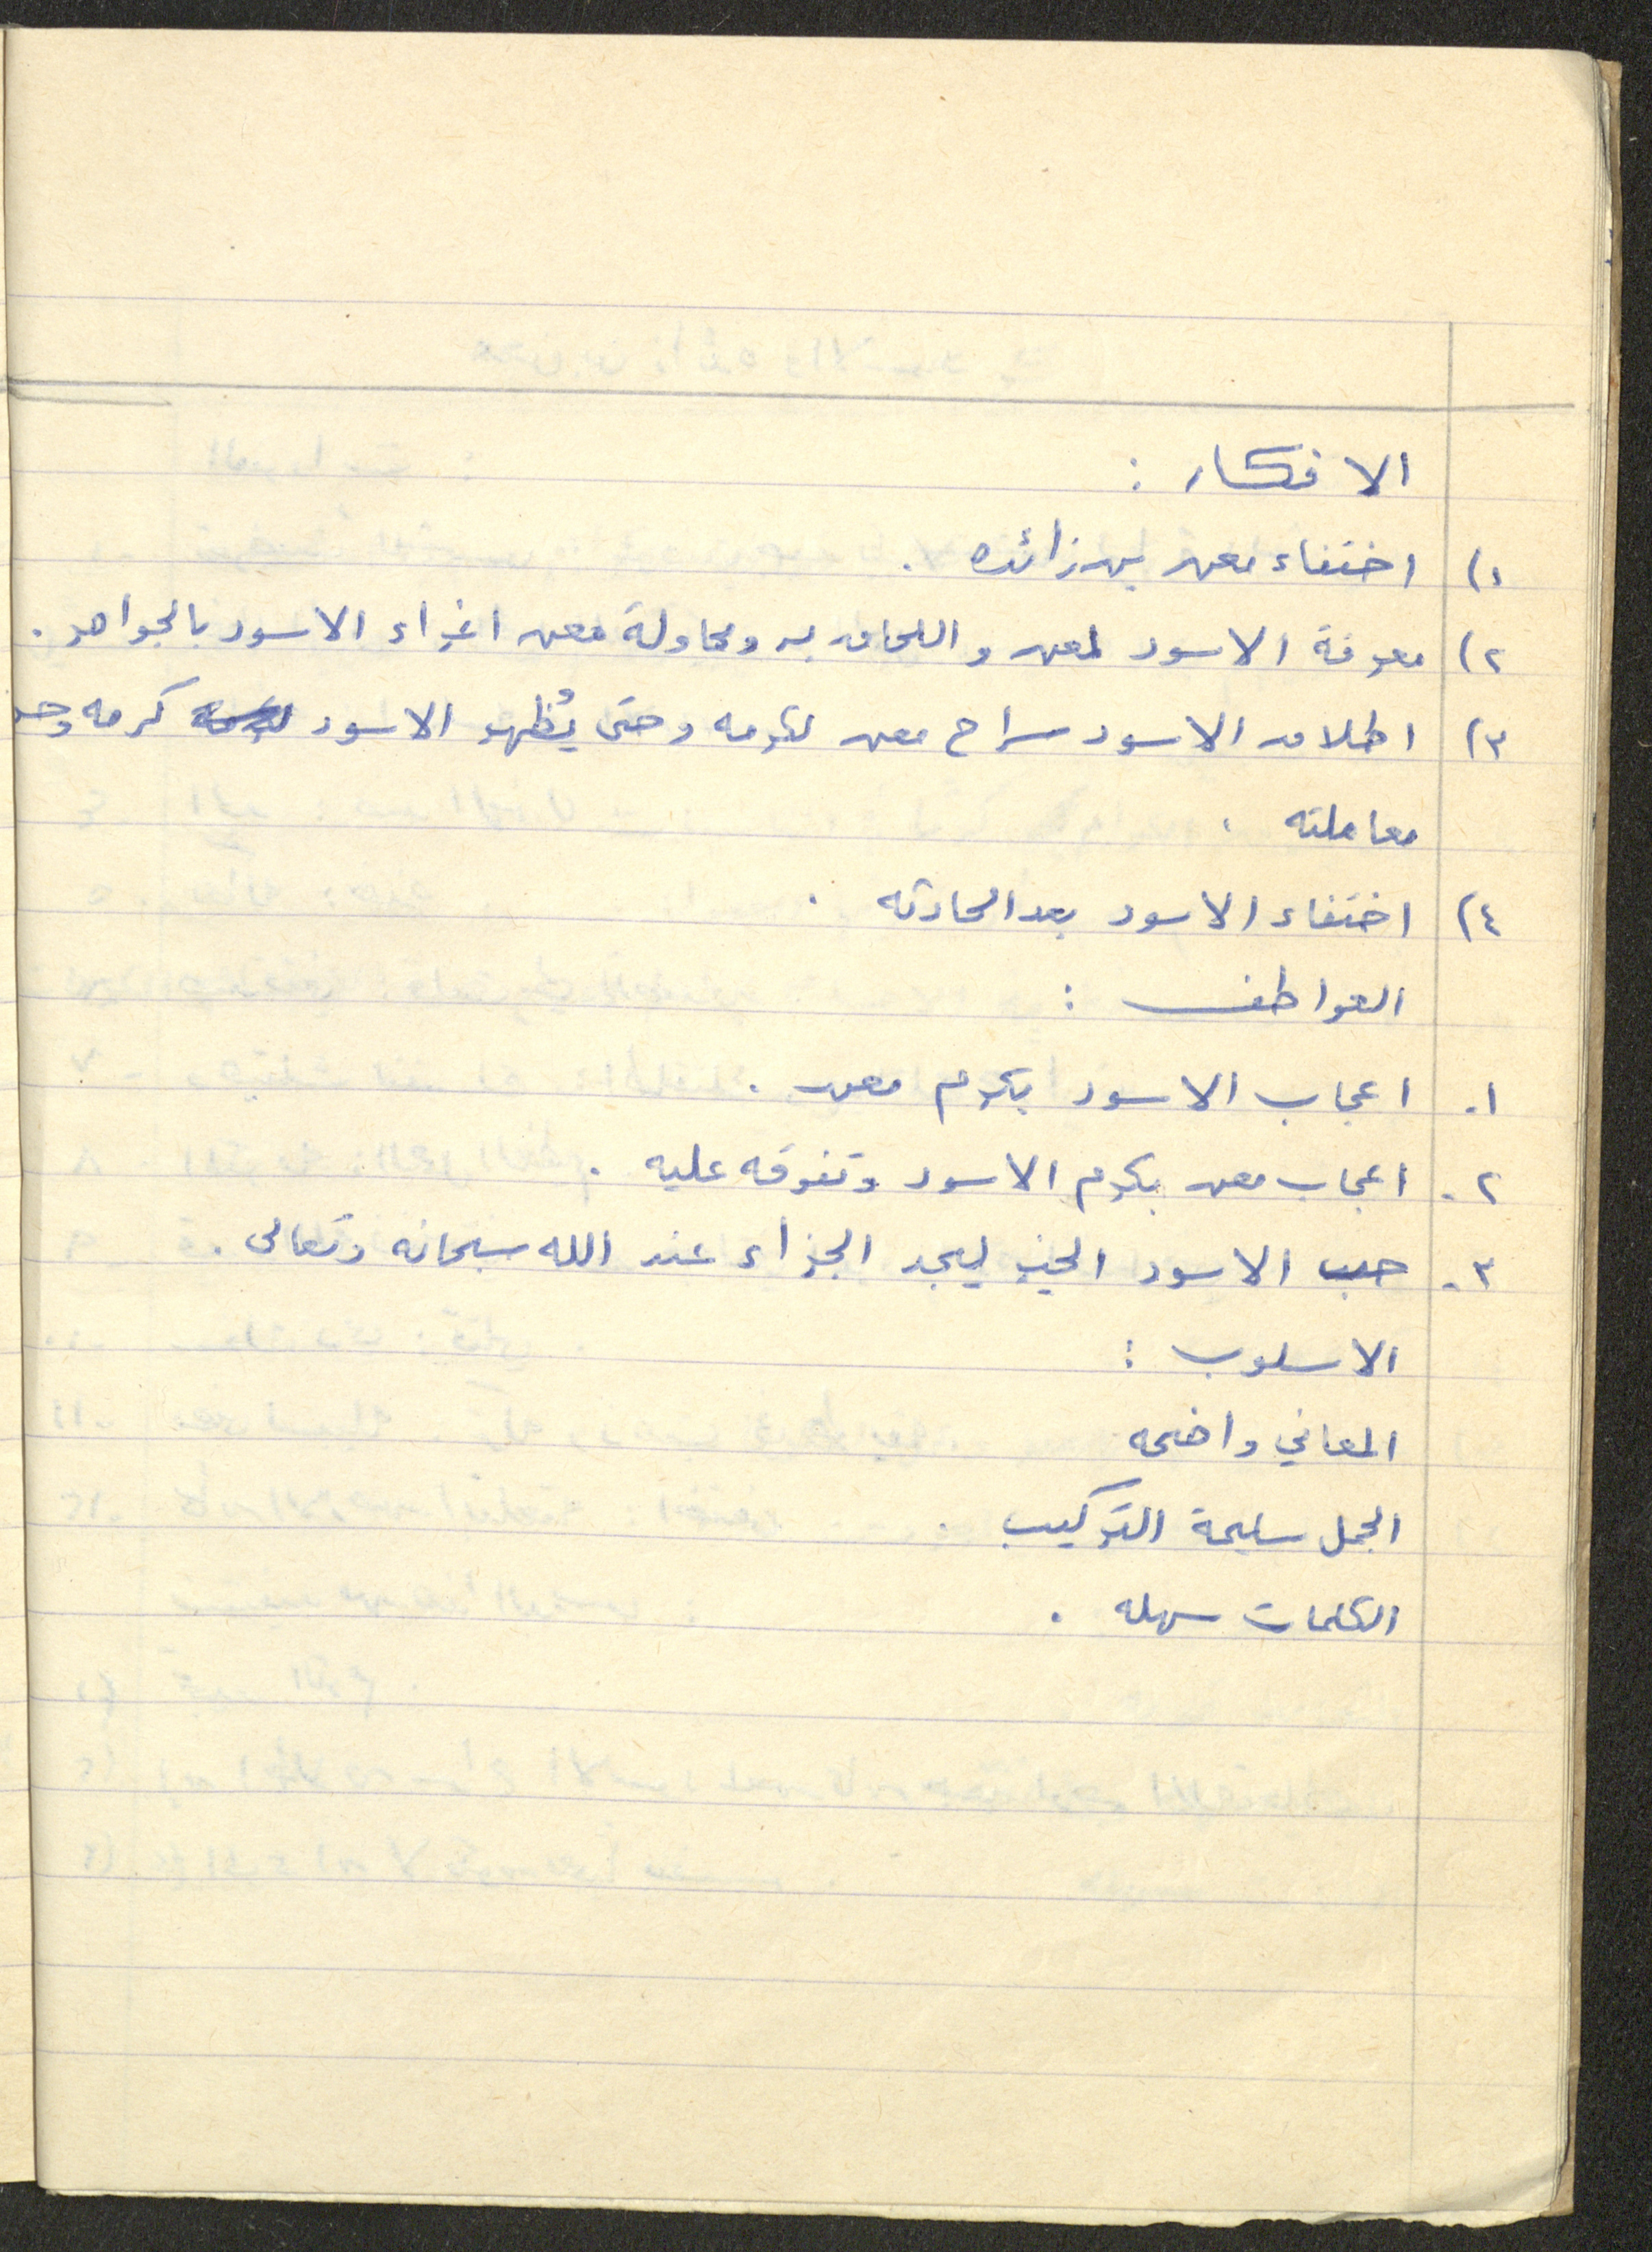 الافكار :
١) اختفاء معن بن زائده .
٢) معرفة الاسود لمعن واللحاق به ومحاولة معن اغراء الاسود بالجواهر .
٣) اطلاق الاسود سراح معن لكرمه وحتى يُظهر الاسود كرمه وحسن
معاملته .
٤) اختفاء الاسود بعد الحادثه .
العواطف :
١. اعجاب الاسود بكرم معن .
٢. اعجاب معن بكرم الاسود وتفوقه عليه .
٣. حب الاسود الخير ليجد الجزاء عند الله سبحانه وتعالى .
الاسلوب :
المعاني واضحه
الجمل سليمة التركيب .
الكلمات سهله .